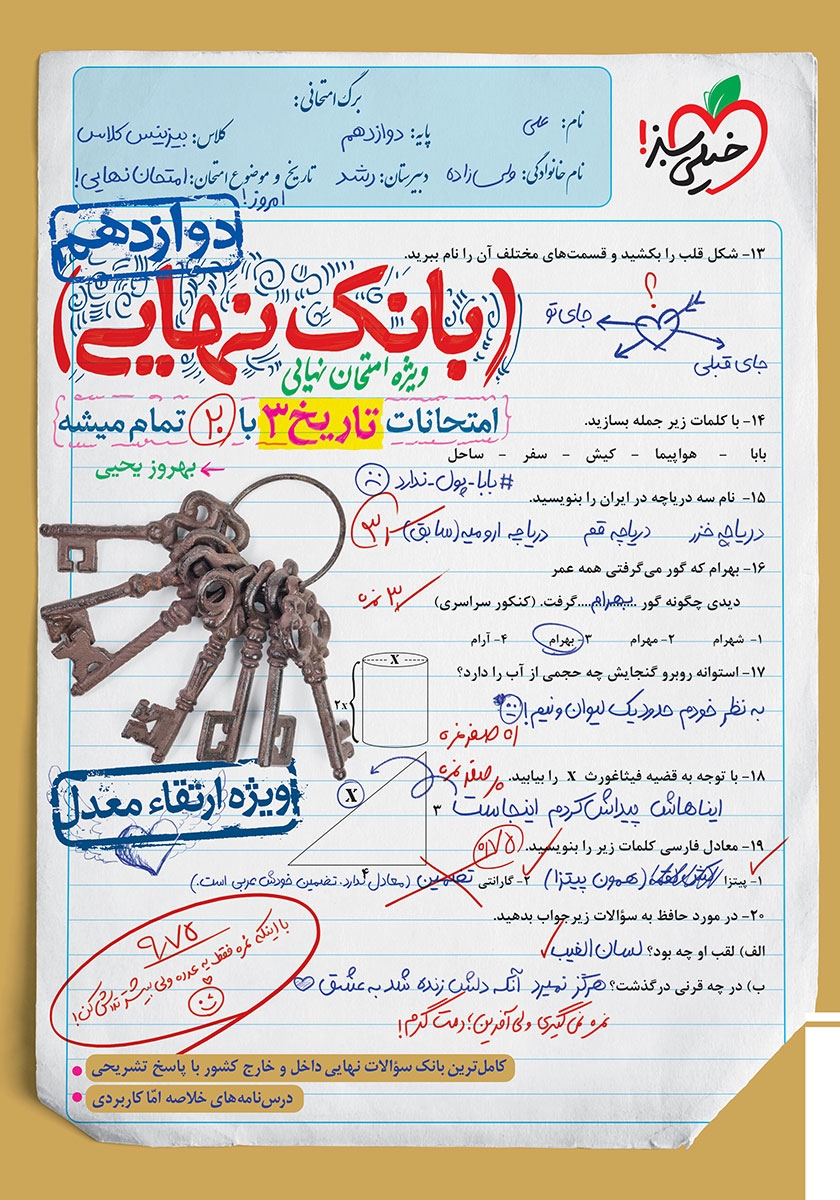 خیلی سبز!
برگ امتحانی:
نام: علی
پایه: دوازدهم
کلاس: بیزینس کلاس
نام خانوادگی: ولی زاده
دبیرستان: رشد
تاریخ و موضوع امتحان: امتحان نهایی!
امروز!
دوازدهم
(بانک نهایی)
ویژه امتحان نهایی
امتحانات تاریخ ۳ با ۲۰ تمام میشه
بهروز یحیی
۱۳- شکل قلب را بکشید و قسمت‌های مختلف آن را نام ببرید.
؟
جای تو
جای قبلی
۱۴- با کلمات زیر جمله بسازید.
بابا - هواپیما - کیش - سفر - ساحل
#بابا-پول-ندارد
۱۵- نام سه دریاچه در ایران را بنویسید.
دریاچه خزر دریاچه قم دریاچه ارومیه (سابق)
۱۶- بهرام که گور می‌گرفتی همه عمر
دیدی چگونه گور ....بهرام.... گرفت. (کنکور سراسری)
۳ نمره
۱- شهرام ۲- مهرام ۳- بهرام ۴- آرام
۱۷- استوانه روبرو گنجایش چه حجمی از آب را دارد؟
X
۲x
به نظر خودم حدود یک لیوان و نیم!
صفر نمره
۱۸- با توجه به قضیه فیثاغورث X را بیابید.
صفر نمره
X
۳
۴
ایناهاش پیداش کردم اینجاست
۱۹- معادل فارسی کلمات زیر را بنویسید.
۰/۷۵
۱- پیتزا (همون پیتزا) ۲- گارانتی تضمین (معادل ندارد. تضمین خودش عربی است.)
۲۰- در مورد حافظ به سؤالات زیر جواب بدهید.
الف) لقب او چه بود؟ لسان الغیب
ب) در چه قرنی درگذشت؟ هرگز نمیرد آنکه دلش زنده شد به عشق
نمره نمی‌گیری ولی آفرین؛ دمت گرم!
ویژه ارتقاء معدل
۹/۷۵
با اینکه نمره فقط یه عدده ولی بیشتر تلاش کن!
کامل‌ترین بانک سؤالات نهایی داخل و خارج کشور با پاسخ تشریحی
درس‌نامه‌های خلاصه امّا کاربردی